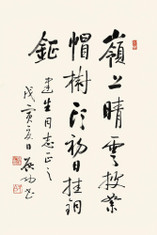 嶺上晴雲披絮
帽樹頭初日挂銅
鉦
建生同志正之
戊寅夏日 啟功書